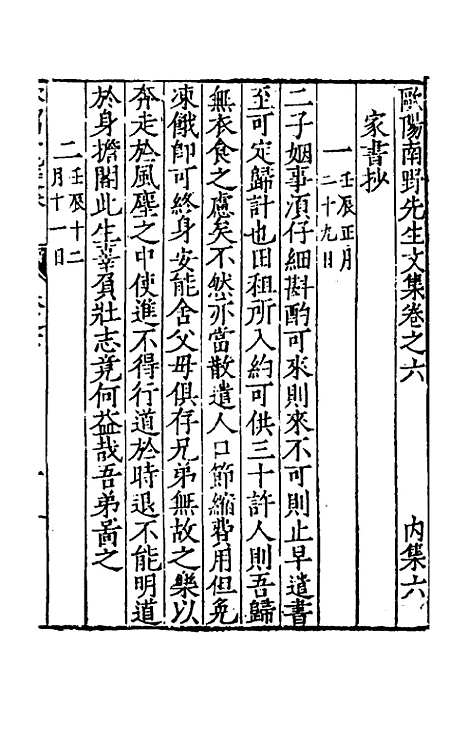 歐陽南野先生文集卷之六 內集六
家書抄
一 壬辰正月二十九日
二子姻事須仔細斟酌可來則來不可則止早遣書
至可定歸計也田租所入約可供三十許人則吾歸
無衣食之慮矣不然亦當散遣人口節縮費用但免
凍餓即可終身安能舍父母俱存兄弟無故之樂以
奔走於風塵之中使進不得行道於時退不能明道
於身擔閣此生辜負壯志竟何益哉吾弟啚之
二 壬辰十二月十一日